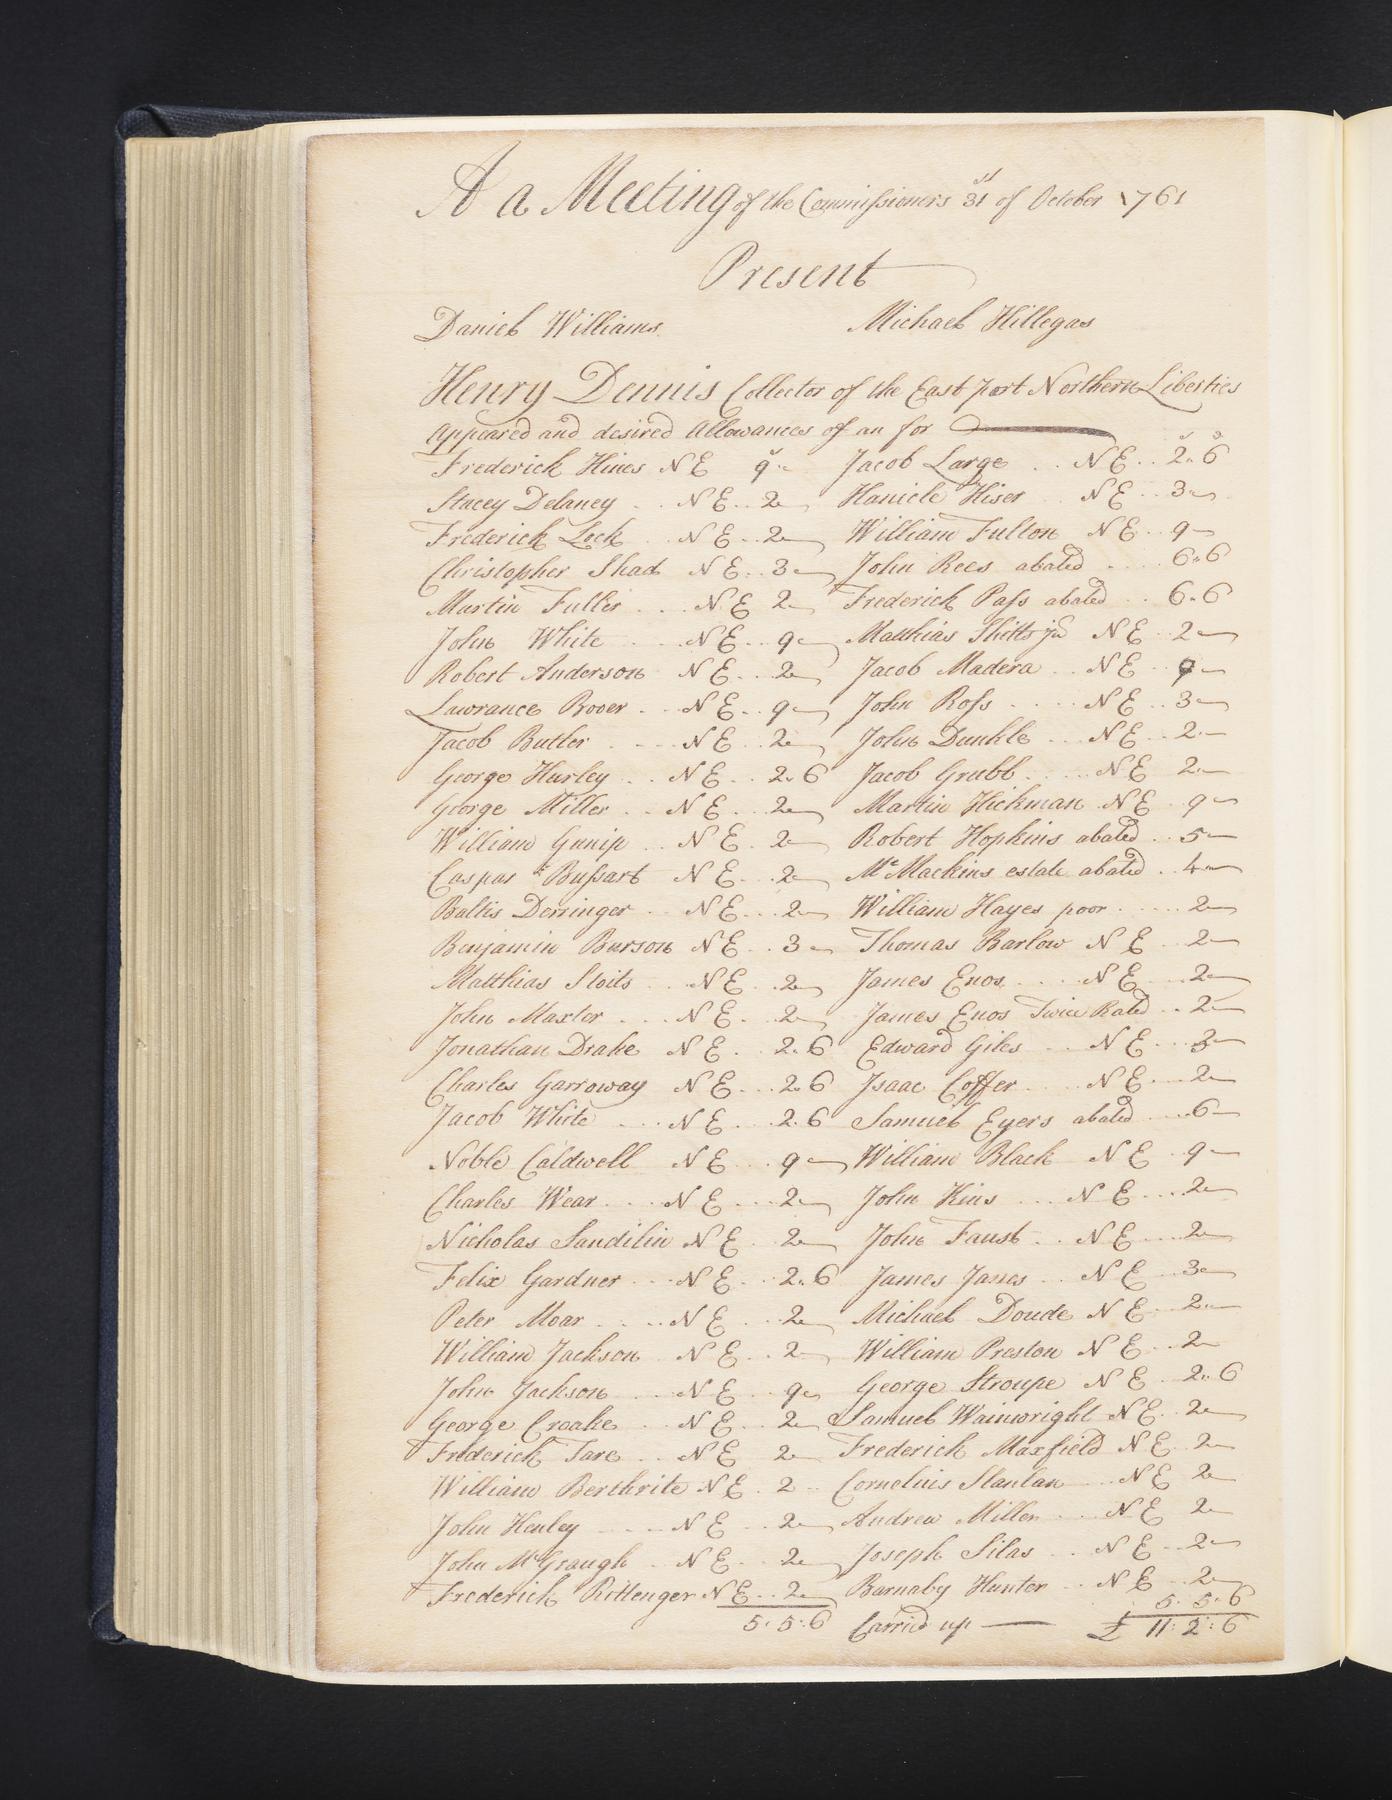 A a Meeting of the Commissioners 31st of October 1761
Present
Daniel Williams Michael Hillegas
Henry Dennis Collector of the East part Northern Liberties
Appeared and desired Allowances of an for
Frederick Hines NE 9 Jacob Large NE 2.6
Stacey Delaney NE 2 Hanicle Hiser NE 3
Frederick Leck NE 2 William Fulton NE 9
Christopher Shad NE 3 John Rees abated 6.6
Martin Fuller NE 2 Frederick Pass abated 6.6
John White NE 9 Matthias Shitts jur NE 2
Robert Anderson NE 2 Jacob Madera NE 9
Lawrance Booer NE 9 John Ross NE 3
Jacob Butler NE 2 John Dunkle NE 2
George Hurley NE 2.6 Jacob Grubb NE 2
George Miller NE 2 Martin Hickman NE 9
William Gunip NE 2 Robert Hopkins abated 5
Caspar Bussart NE 2 McMackins estate abated 4
Baltis Derringer NE 2 William Hayes poor 2
Benjamin Burson NE 3 Thomas Barlow NE 2
Matthias Stoits NE 2 James Enos NE 2
John Maxter NE 2 James Enos Twice Rated 2
Jonathan Drake NE 2.6 Edward Giles NE 3
Charles Garroway NE 2.6 Isaac Coffer NE 2
Jacob White NE 2.6 Samuel Eyers abated 6
Noble Caldwell NE 9 William Black NE 9
Charles Wear NE 2 John Kins NE 2
Nicholas Sandilin NE 2 John Faust NE 2
Felix Gardner NE 2.6 James Janes NE 3
Peter Moar NE 2 Michael Doude NE 2
William Jackson NE 2 William Preston NE 2
John Jackson NE 9 George Stroupe NE 2.6
George Croake NE 2 Samuel Wainwright NE 2
Frederick Tare NE 2 Frederick Maxfield NE 2
William Berthrite NE 2 Cornelius Hanlan NE 2
John Henley NE 2 Andrew Miller NE 2
John McGraugh NE 2 Joseph Silas NE 2
Frederick Rittenger NE 2 Barnaby Hunter NE 2
5. 5. 6
5. 5. 6 Carried up £ 11: 2: 6